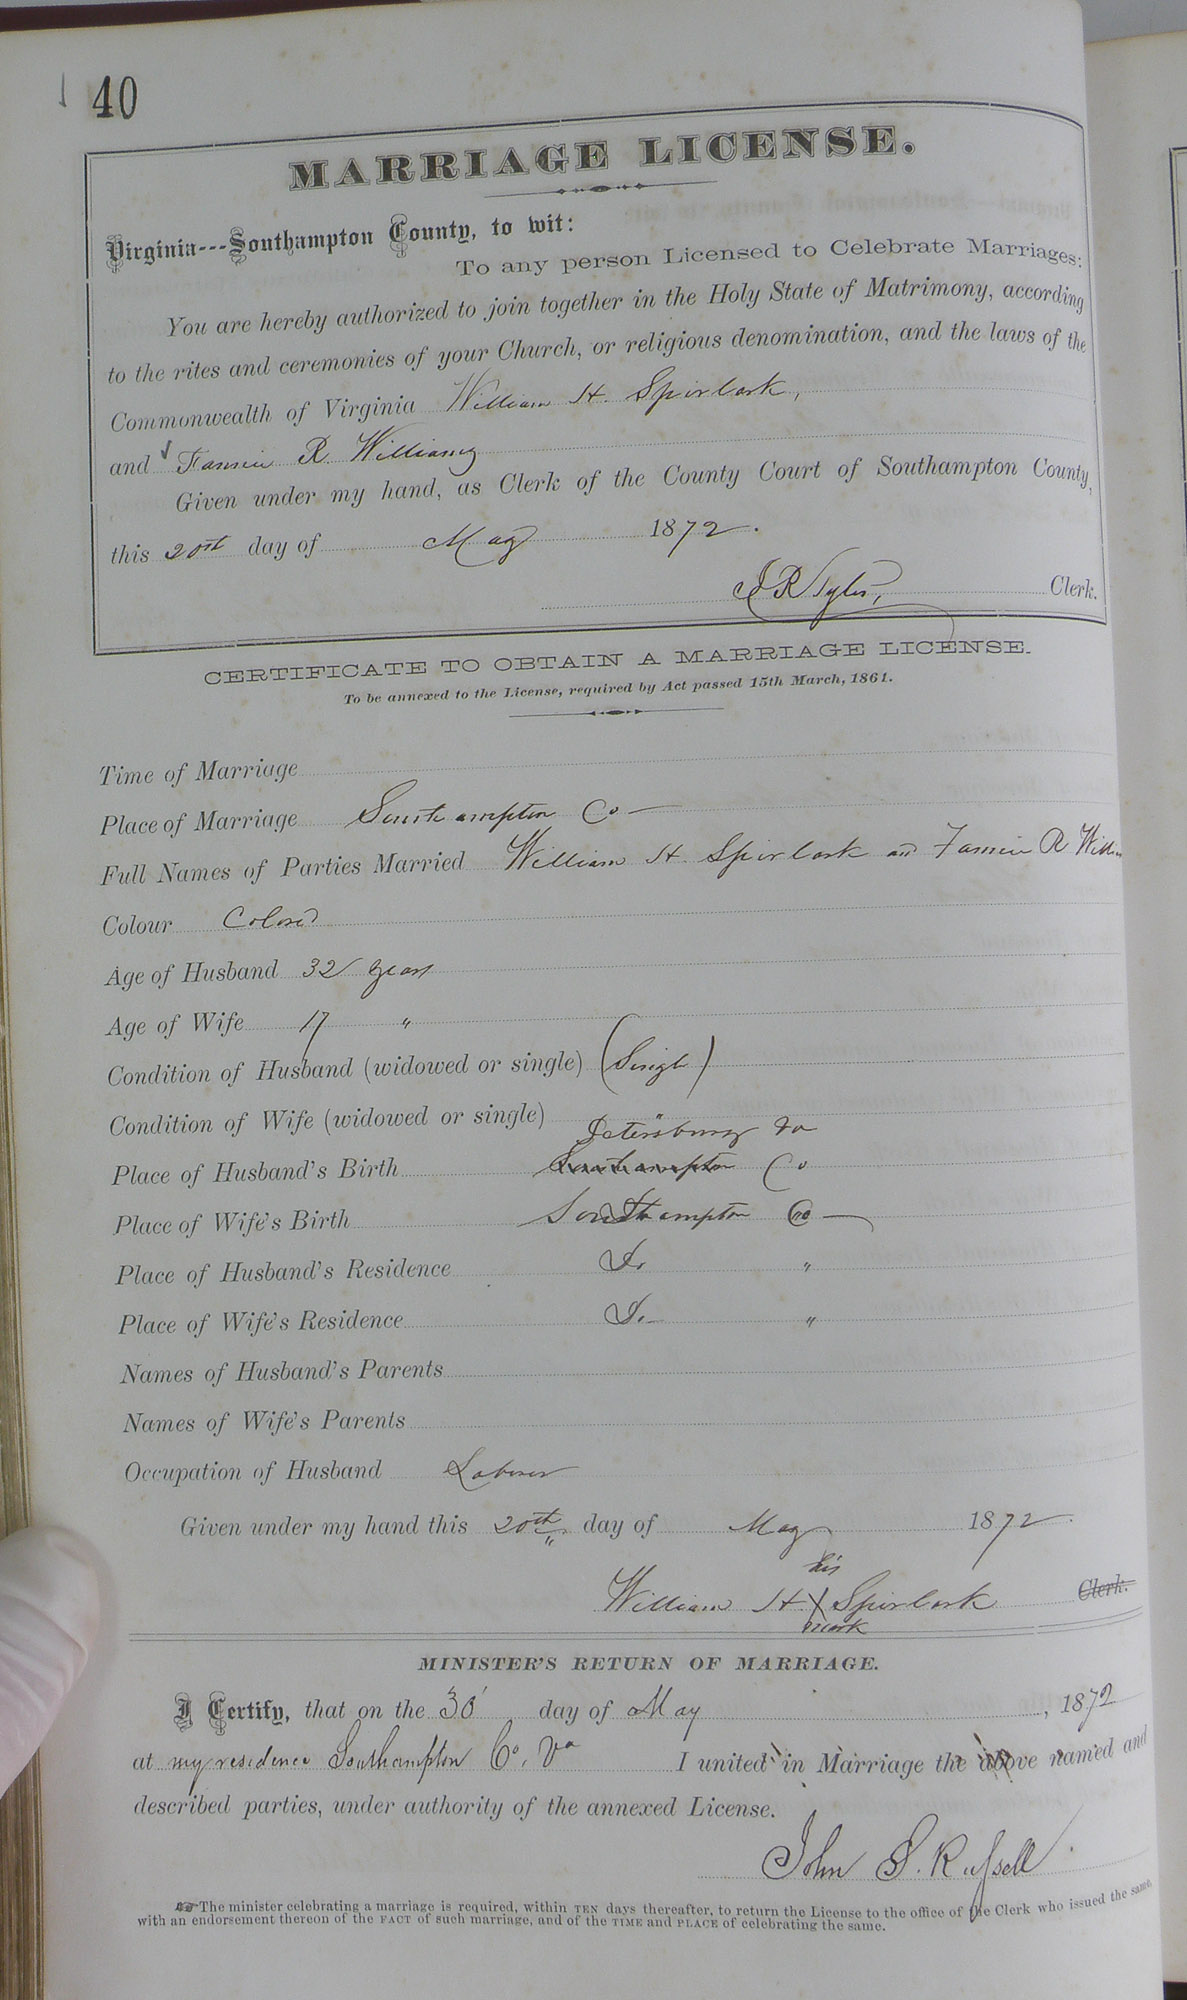 40
MARRIAGE LICENSE.
Virginia---Southampton County, to wit:
To any person Licensed to Celebrate Marriages:
You are hereby authorized to join together in the Holy State of Matrimony, according
to the rites and ceremonies of your Church, or religious denomination, and the laws of the
Commonwealth of Virginia William H. Spirlark,
and Fannie R. Williams
Given under my hand, as Clerk of the County Court of Southampton County,
this 20st day of May 1872.
Clerk.
CERTIFICATE TO OBTAIN A MARRIAGE LICENSE.
To be annexed to the License, required by Act passed 15th March, 1861.
Time of Marriage
Place of Marriage Southampton Co
Full Names of Parties Married William H. Spirlark and Fannie R Willi
Colour Colored
Age of Husband 32 years
Age of Wife 17 "
Condition of Husband (widowed or single) (Single)
Condition of Wife (widowed or single) "
Petersburg Va
Place of Husband's Birth Southampton Co
Place of Wife's Birth Southampton Co
Place of Husband's Residence Do "
Place of Wife's Residence Do "
Names of Husband's Parents
Names of Wife's Parents
Occupation of Husband Laborer
Given under my hand this 20th day of May 1872.
his
William H. X Spirlark Clerk.
mark
MINISTER'S RETURN OF MARRIAGE.
I Certify, that on the 30 day of May, 1872
at my residence Southampton Co. Va I united in Marriage the above named and
described parties, under authority of the annexed License.
John S. Russell
The minister celebrating a marriage is required, within TEN days thereafter, to return the License to the office of the Clerk who issued the same,
with an endorsement thereon of the FACT of such marriage, and of the TIME and PLACE of celebrating the same.